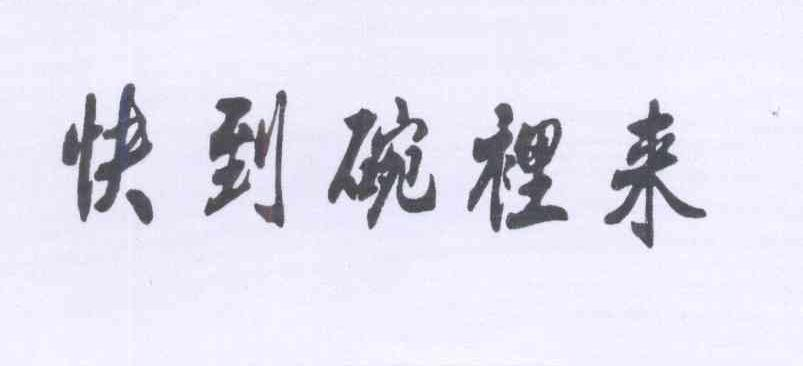 快到碗裡来